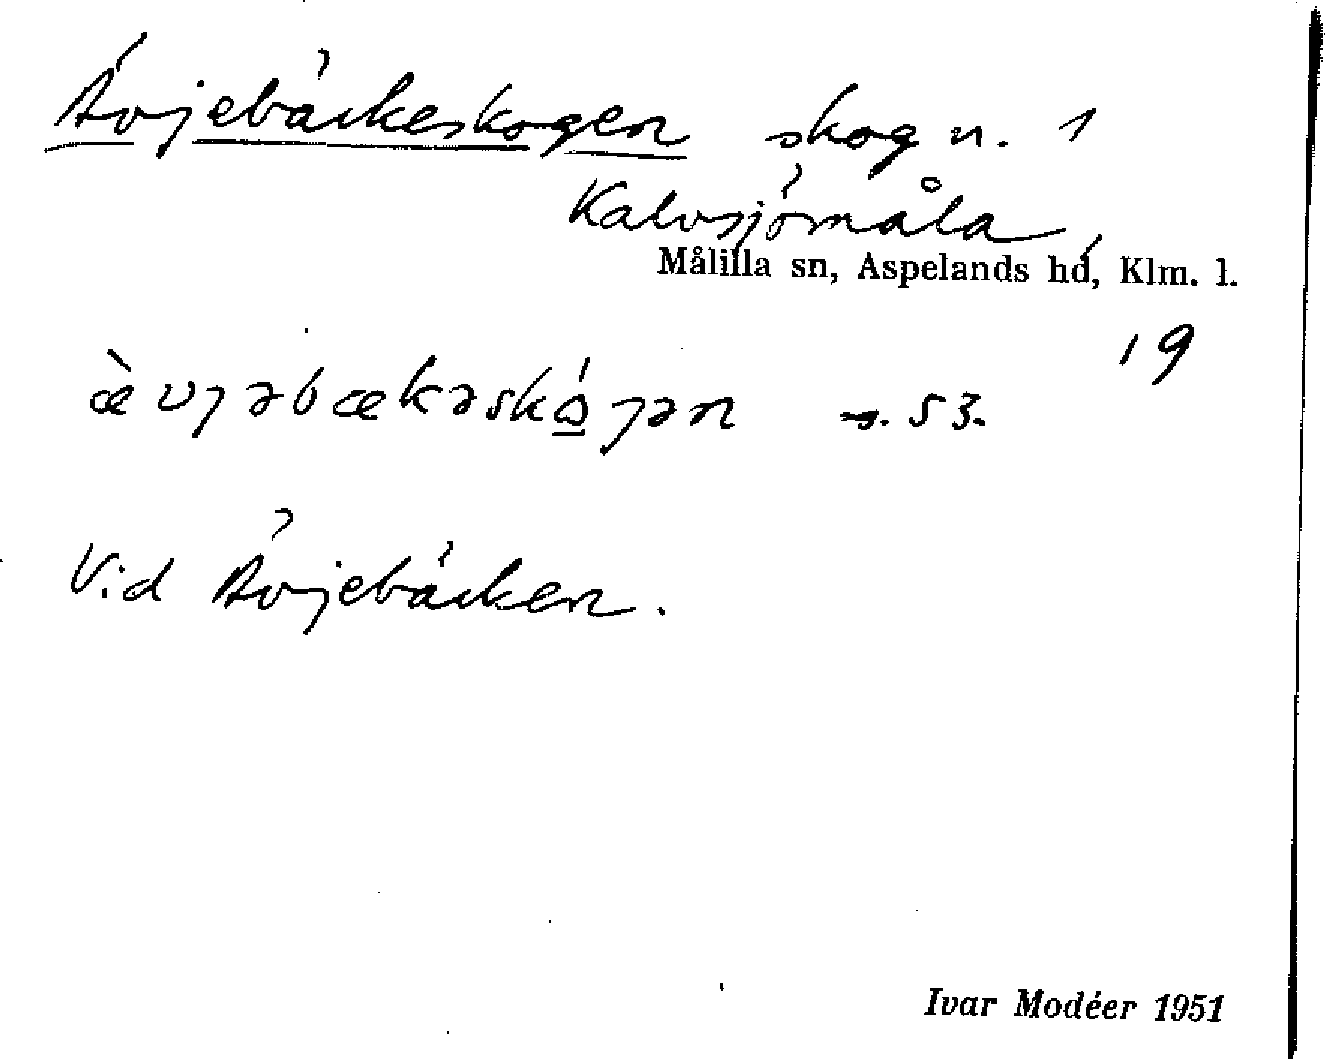 Ävjebäckeskogen skog n. 1
Kalvsjömåla,
Målilla sn, Aspelands hd, Klm. l.
19
æ̀vjəbækəskó̱γən s. 53.
Vid Ävjebäcken.
Ivar Modéer 1951